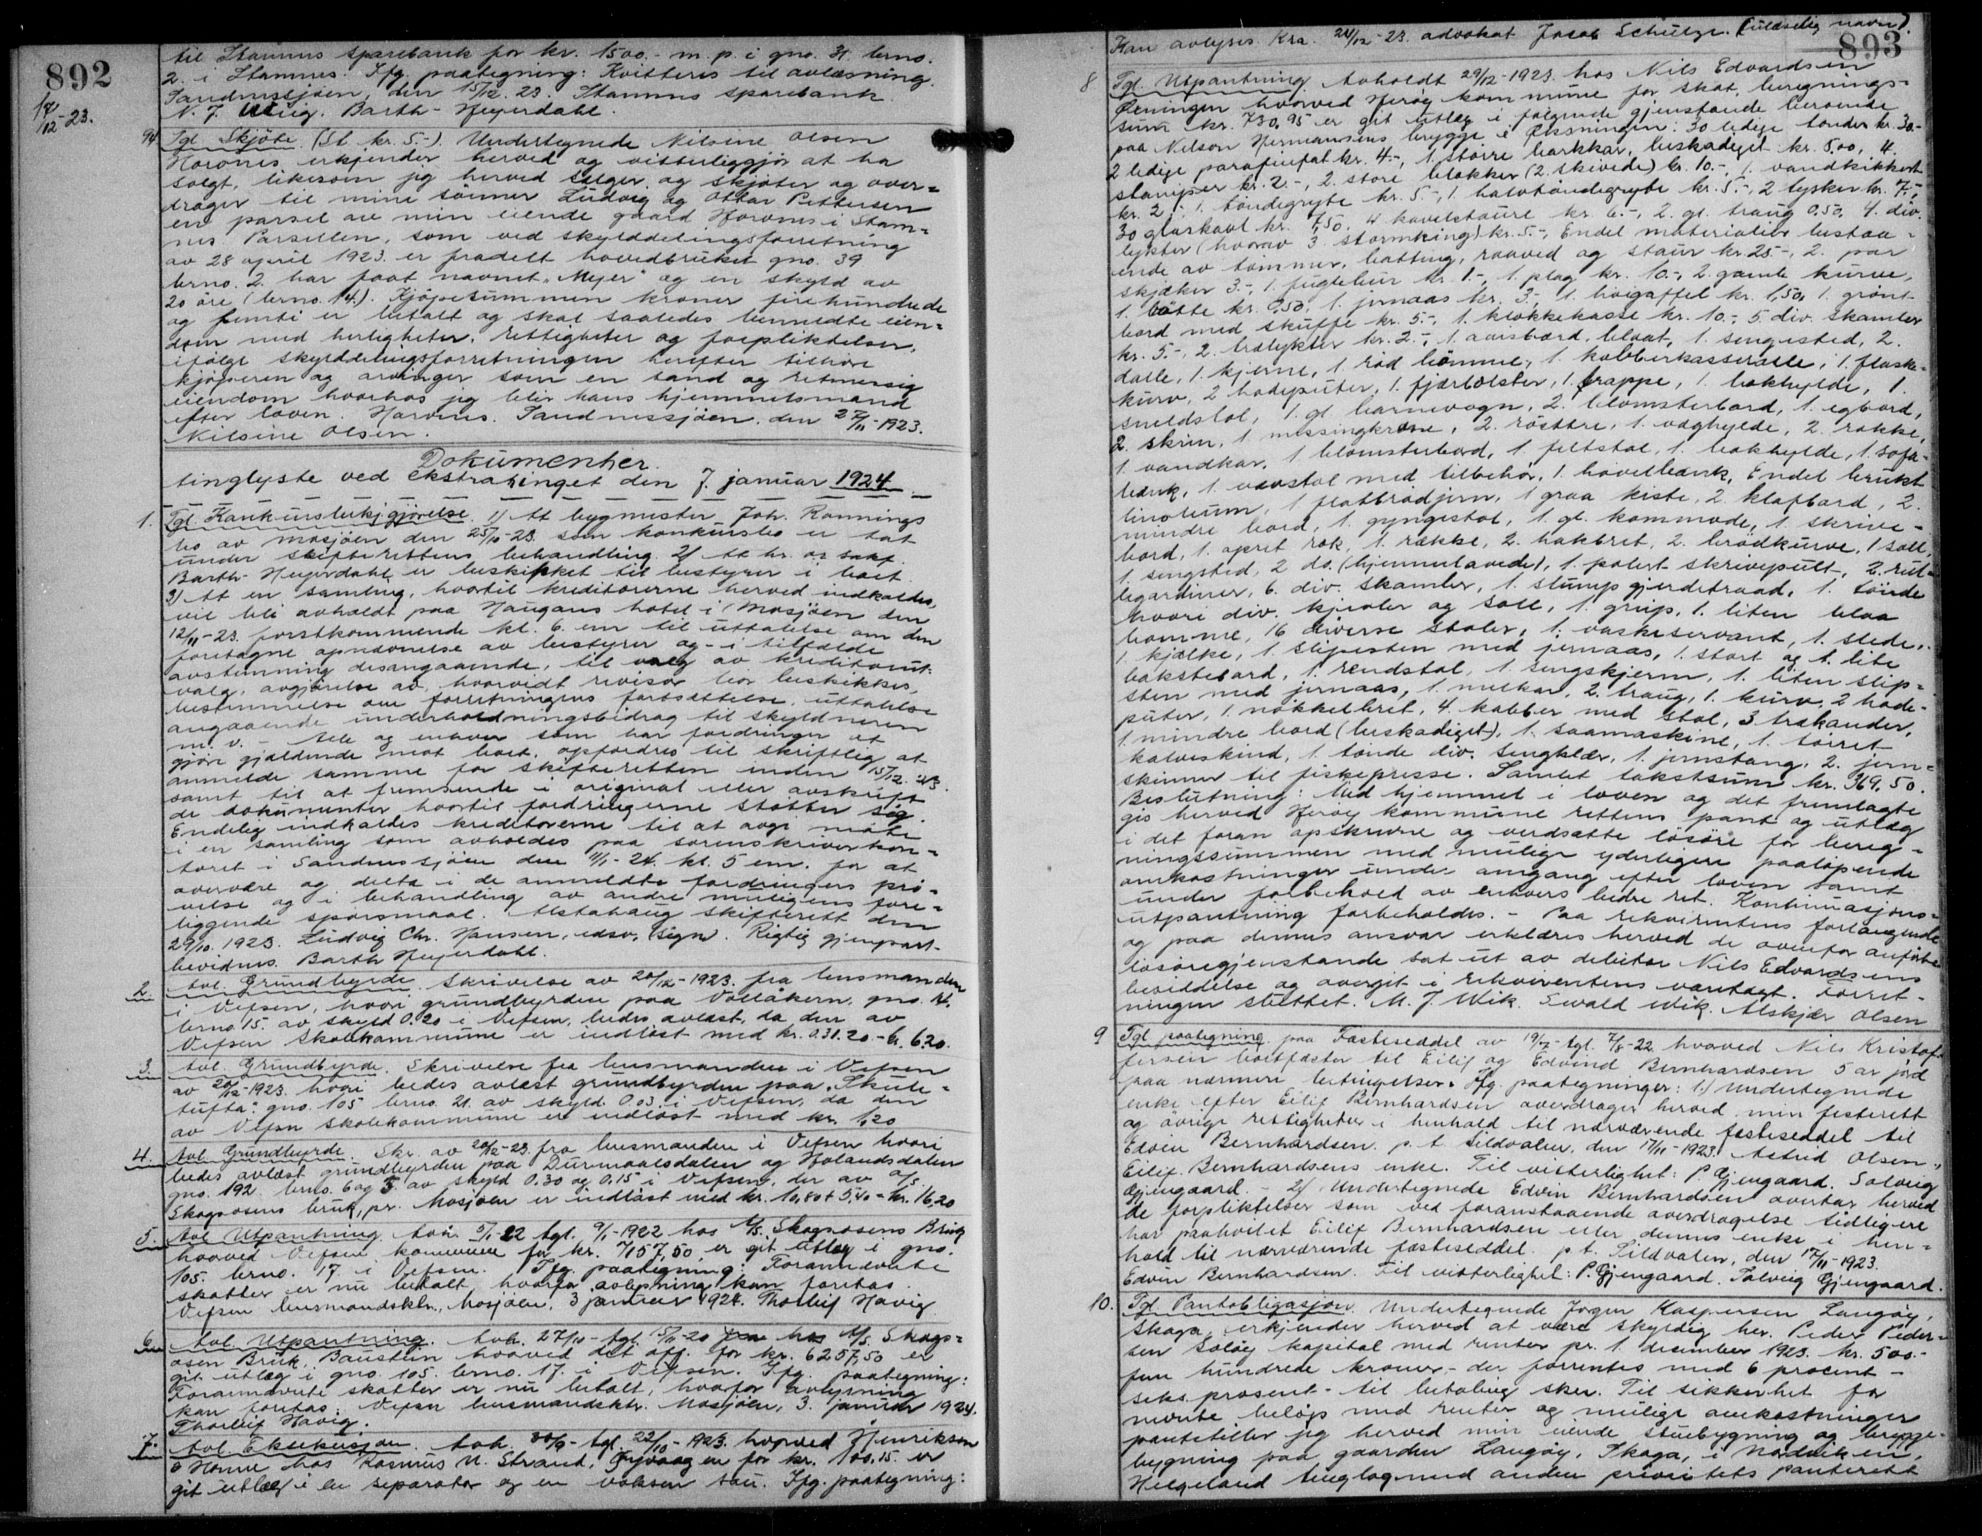 892
17/12-23.
til Stamnes sparebank for kr. 1500.- m. p. i gno. 31 brno.
2. i Stamnes. Ifg. paategning: Kvitteres til avlæsning.
Sandnessjøen, den 15/12. 23. Stamnes sparebank.
N. J. Barth-Heyerdahl.
94 Tgl. Skjøte. (St. kr. 5.-). Undertegnede Nilsine Olsen
Horvnes erkjender herved og vitterliggjør at ha
solgt, likesom jeg herved sælger og skjøter og over=
drager til mine sønner Ludvig og Ottar Pettersen
en parsel av min eiende gaard Horvnes i Stam=
nes. Parsellen, som ved skylddelingsforretning
av 28 april 1923 er fradelt hovedbruket gno. 39
brno. 2 har faat navnet "Meyer" og en skyld av
20 øre (brno. 14). Kjøpesummen kroner firehundrede
og femti er betalt og skal saaledes bemeldte eien=
dom med herligheter, rettigheter og forpliktelser,
ifølge skylddelingsforretningen herefter tilhøre
kjøperen og arvinger som en sand og retmessig
eiendom hvorhos jeg blir hans hjemmelsmand
efter loven. Horvnes. Sandnessjøen, den 27/11-1923.
Nilsine Olsen.
Dokumenter.
tinglyste ved ekstratinget den 7. januar 1924
1. Tgl. Konkursbekjgjørelse. 1) At bygmester Joh. Rønnings
bo av Mosjøen den 25/10-23 som konkursbo er tat
under skifterettens behandling. 2) At hr. o.r. sakf.
Barth-Heyerdahl er beskikket til bestyrer i boet.
3) At en samling, hvortil kreditorerne herved indkaldes,
vil bli avholdt paa Haugans hotel i Mosjøen den
12/11-23. førstkommende kl. 6. em til uttalelse om den
foretagne opnævnelse av bestyrer og - i tilfælde
avstemning desangaaende, til valg av kreditorut-
valg, avgjørelse av, hvorvidt revisor bør beskikkes,
bestemmelse om forretningens fortsættelse, uttalelse
angaaende underholdningsbidrag til skyldneren
m. v. Alle og enhver som har fordringer at
gjøre gjældende mot boet, opfordres til skriftlig at
anmelde samme for skifteretten inden 15/12. 23.
samt til at fremsende i original eller avskrift
de dokumenter hvortil fordringerne støtter sig.
Endelig indkaldes kreditorerne til at avgi møte
i en samling som avholdes paa sorenskriverkon=
toret i Sandnessjøen den 11/1-24. kl. 5 em. for at
overvære og delta i de anmeldte fordringers prø=
velse og i behandling av andre muligens fore=
liggende spørsmaal. Alstahaug skifterett den
29/10. 1923. Ludvig Chr. Hansen, edsv. (sign). Rigtig gjenpart
bevidnes. Barth Heyerdahl.
2. Avl. Grundbyrde. Skrivelse av 20/12-1923. fra lensmanden
i Vefsen, hvori grundbyrden paa Vollåkern, gno.
brno 15. av skyld 0.20 i Vefsen, bedes avlæst, da den av
Vefsen Skolekommune er indløst med kr. 0.31.20 = kr. 6.20.
3. Avl. Grundbyrde. Skrivelse fra lensmanden i Vefsen
av 20/12-1923. hvori bedes avlæst grundbyrden paa "Skule-
tufta". gno. 105 brno. 21. av skyld 0.03 i Vefsen, da den
av Vefsn skolekommune er indløst med kr. 1,20
4. Avl. Grundbyrde. Skr. av 20/12-23. fra lensmanden i Vefsen hvori
bedes avlæst grundbyrden paa Durmaalsdalen og Holandsdalen
gno. 192 brno. 6 og 5 av skyld 0.30 og 0.15 i Vefsen, der av A/S
Skogsosens bruk, pr. Mosjøen er indløst med kr. 10,80 + 5,40 = kr. 16,20
5. Avl. Utpantning. Avh. 5/1-22 tgl. 9/1-1922 hos A/S Skogsosens Bruk
hvorved Vefsen kommune for kr. 7157,50 er git utlæg i gno.
105. brno. 17. i Vefsen. Ifg. paategning: Forannævnte
skatter er nu betalt, hvorfor avlysning kan foretas.
Vefsen lensmandsktr., Mosjøen, 3 januar 1924. Thorleif Havig
6. Avl. Utpantning. Avh. 27/10- tgl. 15/11-20 hos A/S Skogs=
osen Bruk, Baustein hvorved det off. for kr. 6257,50 er
git utlæg i gno. 105. brno. 17. i Vefsen. Ifg. paategning:
Forannævnte skatter er nu betalt, hvorfor avlysning
kan foretas. Vefsn lensmandsktr. Mosjøen, 3. januar 1924.
Thorleif Havig.
7. Avl. Eksekusjon. Avh. 20/9- tgl. 22/10-1923. hvorved Henriksen
& Horne hos Rasmus N. Strand, for kr. 100,15. er
git utlæg i en separator og en voksen sau. Ifg. paategning:
893
Kan avlyses Kra. 24/12-23. advokat Jacob Schulze. (ulæselig navn).
8 Tgl. Utpantning. Avholdt 29/12-1923. hos Nils Edvardsen
Øksningen hvorved Herøy kommune for skat, beregnings-
sum kr. 730,95 er git utlæg i følgende gjenstande beroende
paa Nelson Hermansens brygge i Øksningen: 30 ledige tønder kr. 30.-
2 ledige parafinfat kr. 4.-, 1 større barkkar, beskadiget kr. 5,00, 4.
stamper kr. 2.-, 2. store blokker (2. skivede) kr. 10.-, 1. vandkikkert
kr. 2.-, 1. tøndegryte kr. 5.-, 1 halvtøndegryte kr. 5.-, 2 lysker kr. 7.-,
30 glaskavl kr. 1,50. 4 kavelstaure kr. 6.-, 2. gl. traug 0.50, 4. div.
lykter (hvorav 3 stormking) kr. 5.-, Endel materialier bestaa-
ende av tømmer, batting, raaved og staur kr. 25.-, 2. par
skjæker 3.-, 1. fuglebur kr. 1.-, 1 plog kr. 10.-, 2. gamle kurve,
1. bøtte kr. 0,50, 1. jernaas kr. 3.-, 1. høigaffel kr. 1,50, 1. grønt
bord med skuffe kr. 5.-, 1. klokkekasse kr. 10.-, 5 div. skamler
kr. 5.-, 2. trælykter kr. 2.-, 1. avisbord, blaat, 1. sengested, 2.
dalle, 1. kjerne, 1. rød bomme, 1. kobberkasserolle, 1. flaske-
kurv, 2. hodeputer, 1. fjærbolster, 1. trappe, 1. bokhylde, 1.
sneldstol, 1. gl. barnevogn, 2. blomsterbord, 1. egbord,
2. skrin, 1 messingkrone, 2. , 1. væghylde, 2. rokke,
1. vandkar, 1 blomsterbord, 1 feltstol, 1. bokhylde, 1. sofa-
bænk, 1. vævstol med tilbehør, 1. høvelbænk, Endel brukt
linoleum, 1 flatbrødjern, 1 graa kiste, 2. klafbord, 2.
mindre bord, 1. gyngestol, 1. gl. kommode, 1. skrive-
bord, 1. opret rok, 1. række, 2. bakbret, 2. brødkurve, 1 soll,
1. sengsted, 2 do. (hjemmelavede), 1. polert skrivepult, 2. rul-
legardiner, 6. div. skamler, 1. stump gjerdetraad, 1. tønde
hvori div. kjeraler og soll, 1. grup, 1. liten blaa
bomme, 16 diverse stoler, 1. vaskeservant, 1. slede,
1 kjælke, 1 slipesten med jernaas, 1. stort og 1. lite
bakstebord, 1. rendstol, 1. sengskjerm, 1. liten slip-
sten med jernaas, 1. melkar, 2. traug, 1. kurv, 2 hode-
puter, 1. nøkkelbret, 4. kobber med stol, 3. trækander,
1. mindre bord (beskadiget), 1. saamaskine, 1. tørret
kalveskind, 1. tønde div. sengklær, 1. jernstang, 2. jern=
skinner til fiskepresse. Samlet takstsum kr. 369,50.
Beslutning: Med hjemmel i loven og det fremlagte
gis herved Herøy kommune rettens pant og utlæg
i det foran opskrevne og verdsatte løsøre for bereg-
ningssummen med mulige yderligere paaløpende
omkostninger under omgang efter loven samt
under forbehold av enhvers bedre ret. Kontinuasjons-
utpantning forbeholdes. - Paa rekvirentens forlangende
og paa dennes ansvar erklæres herved de ovenfor anførte
løsøregjenstande sat ut av debitor Nils Edvardsens
besiddelse og overgit i rekvirentens varetægt. Forret-
ningen sluttet. M. J Wik. Ewald Wik. Alskjær Olsen
9 Tgl. paategning paa Fæsteseddel av 19/7- tgl. 7/8-22 hvorved Nils Kristof-
fersen bortfæster til Eilif og Edvind Bernhardsen 5 ar jord
paa nærmere betingelser. Ifg. paategninger: 1) Undertegnede
enke efter Eilif Bernhardsen overdrager herved min festerett
og øvrige rettigheter i henhold til nærværende fæsteseddel til
Edvin Bernhardsen. p. t. Sildvalen, den 17/11-1923. Astrid Olsen,
Eilif Bernhardsens enke. Til vitterlighet: P. Gjengaard. Solveig
Gjengaard. - 2) Undertegnede Edvin Bernhardsen overtar herved
de forpliktelser som ved foranstaaende overdragelse tidligere
har paahvilet Eilif Bernhardsen eller dennes enke i hen-
hold til nærværende fæsteseddel. p. t. Sildvalen, den 17/11-1923.
Edvin Bernhardsen. Til vitterlighet: P. Gjengaard. Solveig Gjengaard.
10. Tgl. Pantobligasjon. Undertegnede Jørgen Kaspersen Langøy,
Skaga, erkjender herved at være skyldig hr. Peder Peder-
sen Soløy kapital med renter pr. 1. desember 1923. kr. 500.-
fem hundrede kroner - der forrentes med 6 procent -
seks prosent - til betaling sker. Til sikkerhet for
nævnte beløp med renter og mulige omkostninger
pantstiller jeg herved min eiende stuebygning og brygge-
bygning paa gaarden Langøy, Skaga, i Nordviken,
Helgeland tinglag med anden prioritets panterett